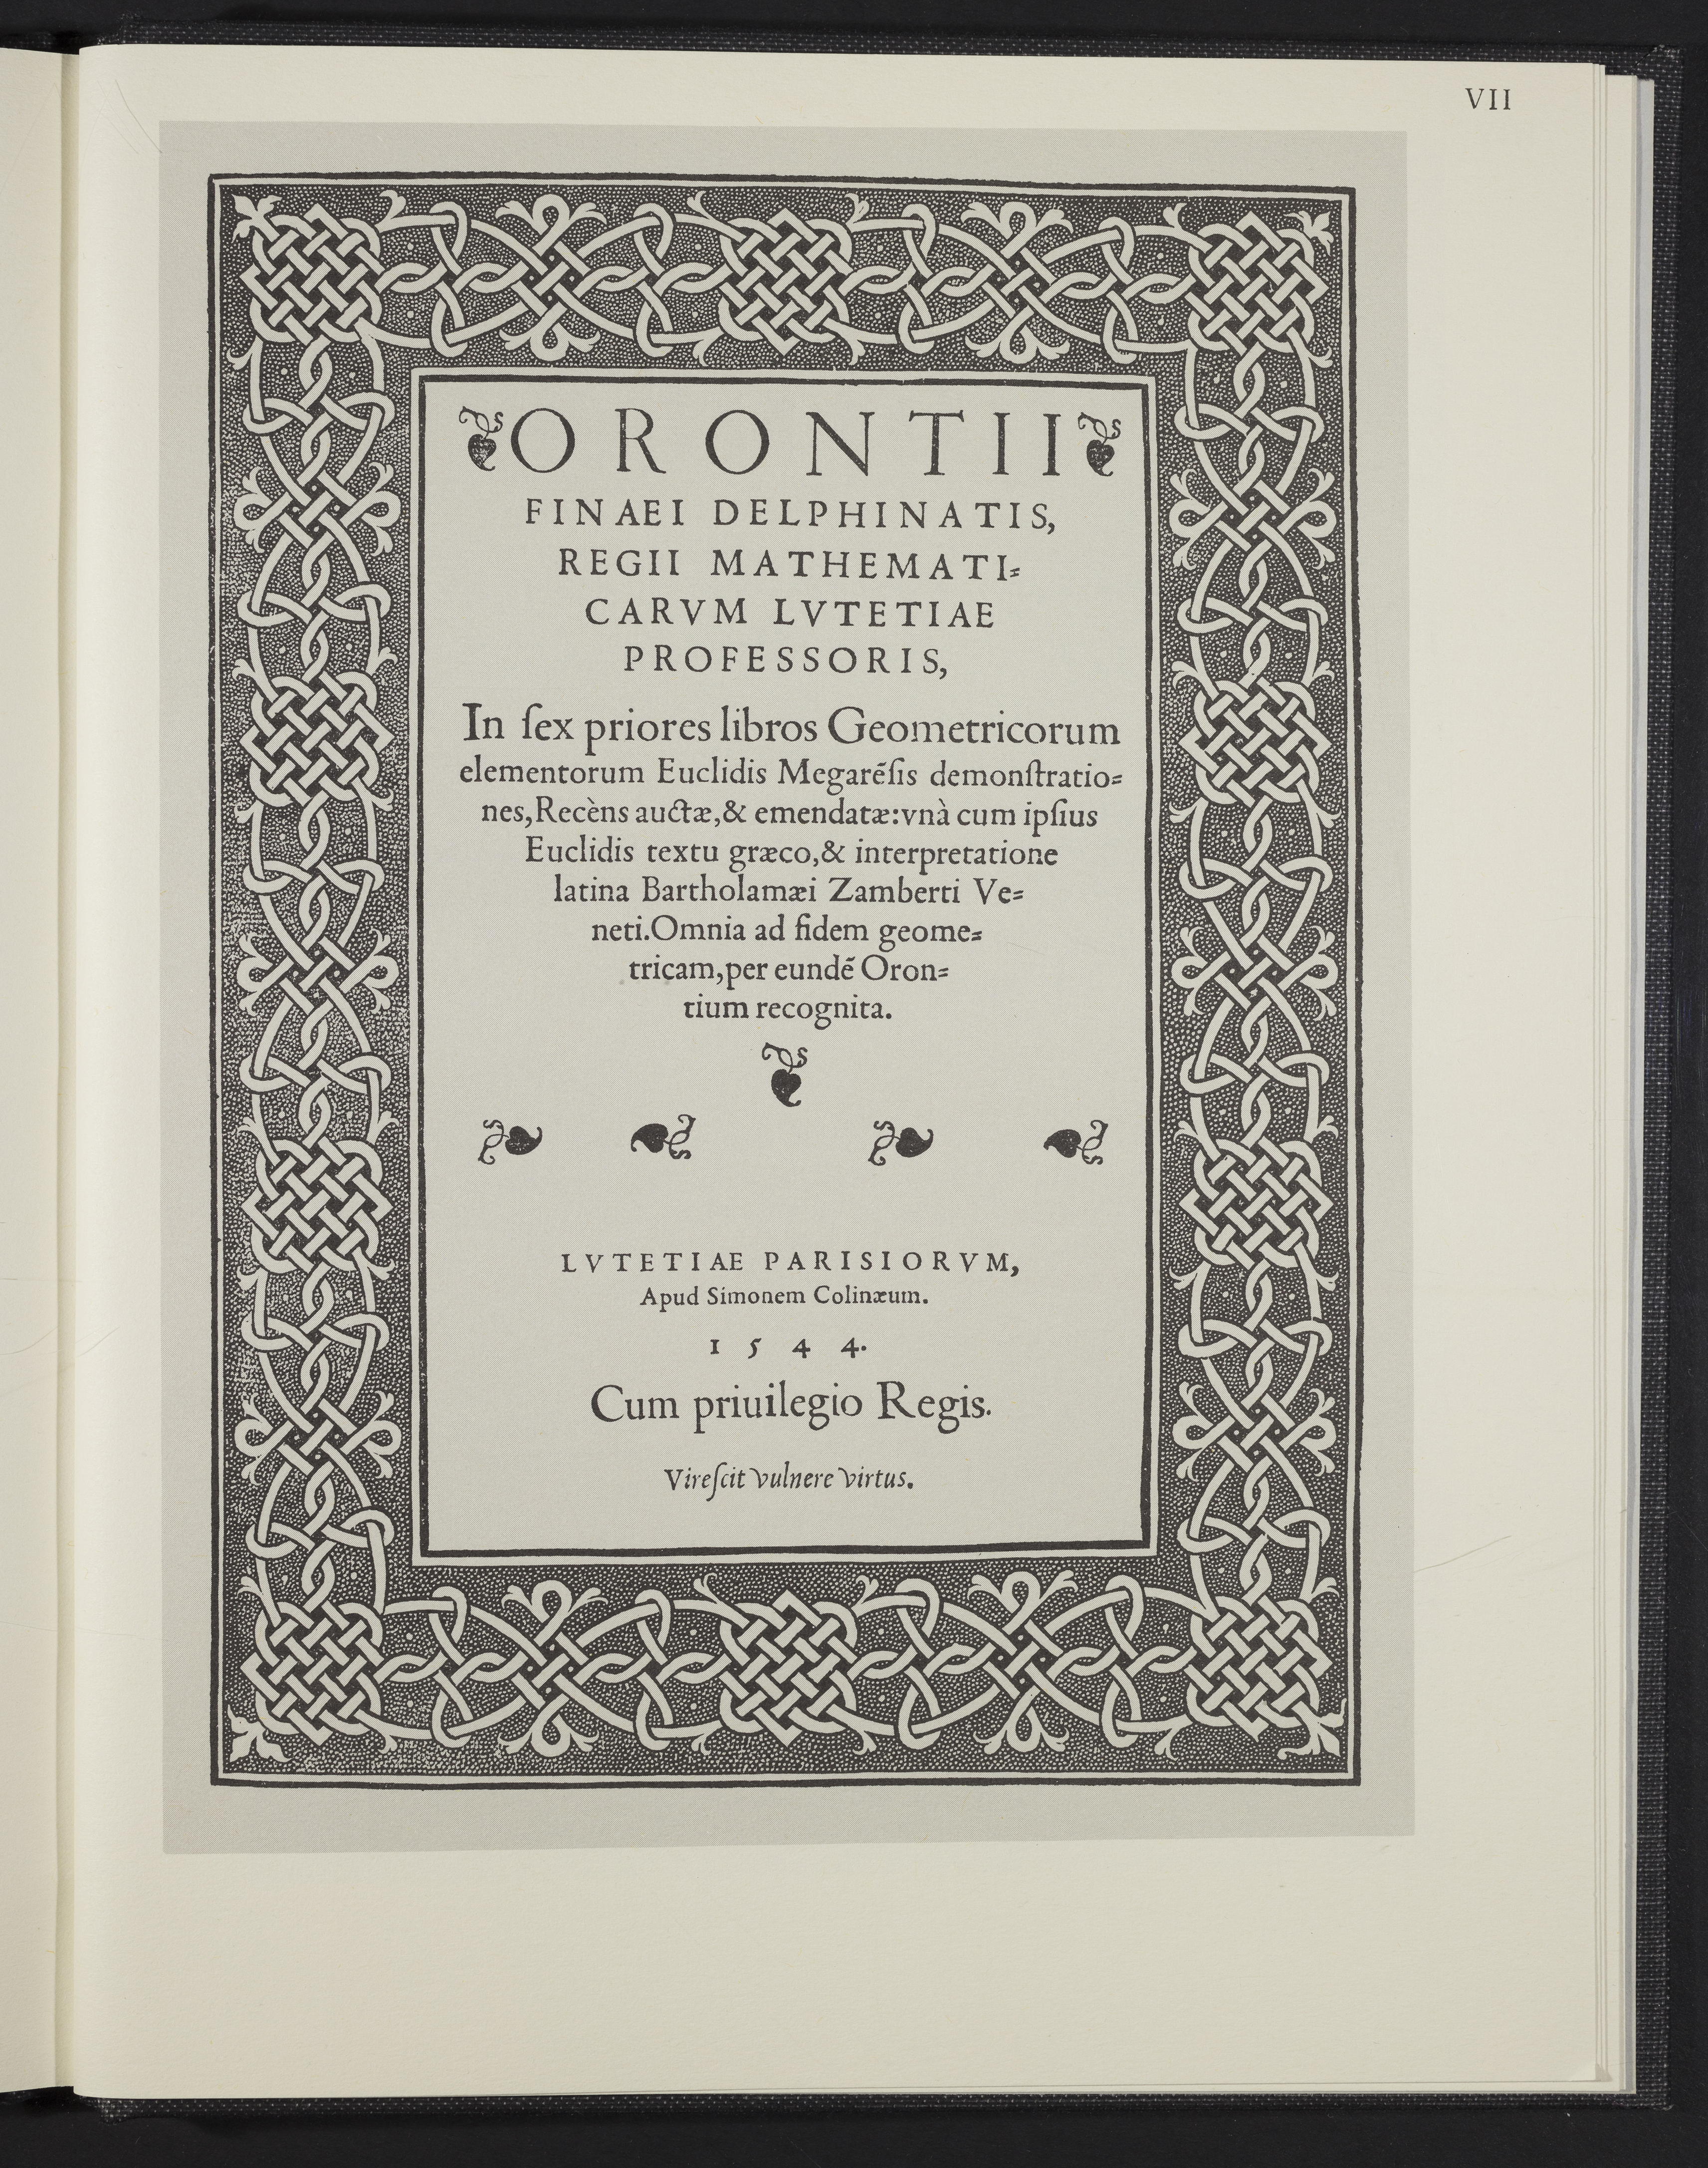 VII
ORONTII
FINAEI DELPHINATIS,
REGII MATHEMATI⸗
CARVM LVTETIAE
PROFESSORIS,
In ſex priores libros Geometricorum
elementorum Euclidis Megarẽſis demonſtratio⸗
nes, Recèns auctæ, & emendatæ: vnà cum ipſius
Euclidis textu græco, & interpretatione
latina Bartholamæi Zamberti Ve⸗
neti. Omnia ad fidem geome⸗
tricam, per eundẽ Oron⸗
tium recognita.
LVTETIAE PARISIORVM,
Apud Simonem Colinæum.
1544.
Cum priuilegio Regis.
Vireſcit vulnere virtus.